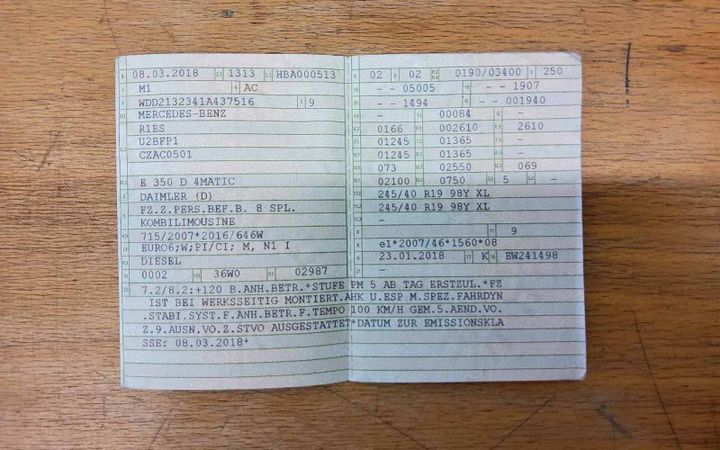 08.03.2018 1313 HBA000513
M1 AC
WDD2132341A437516 9
MERCEDES-BENZ
R1ES
U2BFP1
CZAC0501
E 350 D 4MATIC
DAIMLER (D)
FZ.Z.PERS.BEF.B. 8 SPL.
KOMBILIMOUSINE
715/2007*2016/646W
EURO6;W;PI/CI; M, N1 I
DIESEL
0002 36W0 02987
02 02 0190/03400 250
- - 05005 - - 1907
- - 1494 - - 001940
- 00084 -
0166 002610 2610
01245 01365 -
01245 01365 -
073 02550 069
02100 0750 5 -
245/40 R19 98Y XL
245/40 R19 98Y XL
-
- 9
e1*2007/46*1560*08
23.01.2018 K EW241498
7.2/8.2:+120 B.ANH.BETR.*STUFE PM 5 AB TAG ERSTZUL.*FZ
IST BEI WERKSSEITIG MONTIERT.AHK U.ESP M.SPEZ.FAHRDYN
.STABI.SYST.F.ANH.BETR.F.TEMPO 100 KM/H GEM.5.AEND.VO.
Z.9.AUSN.VO.Z.STVO AUSGESTATTET*DATUM ZUR EMISSIONSKLA
SSE: 08.03.2018*